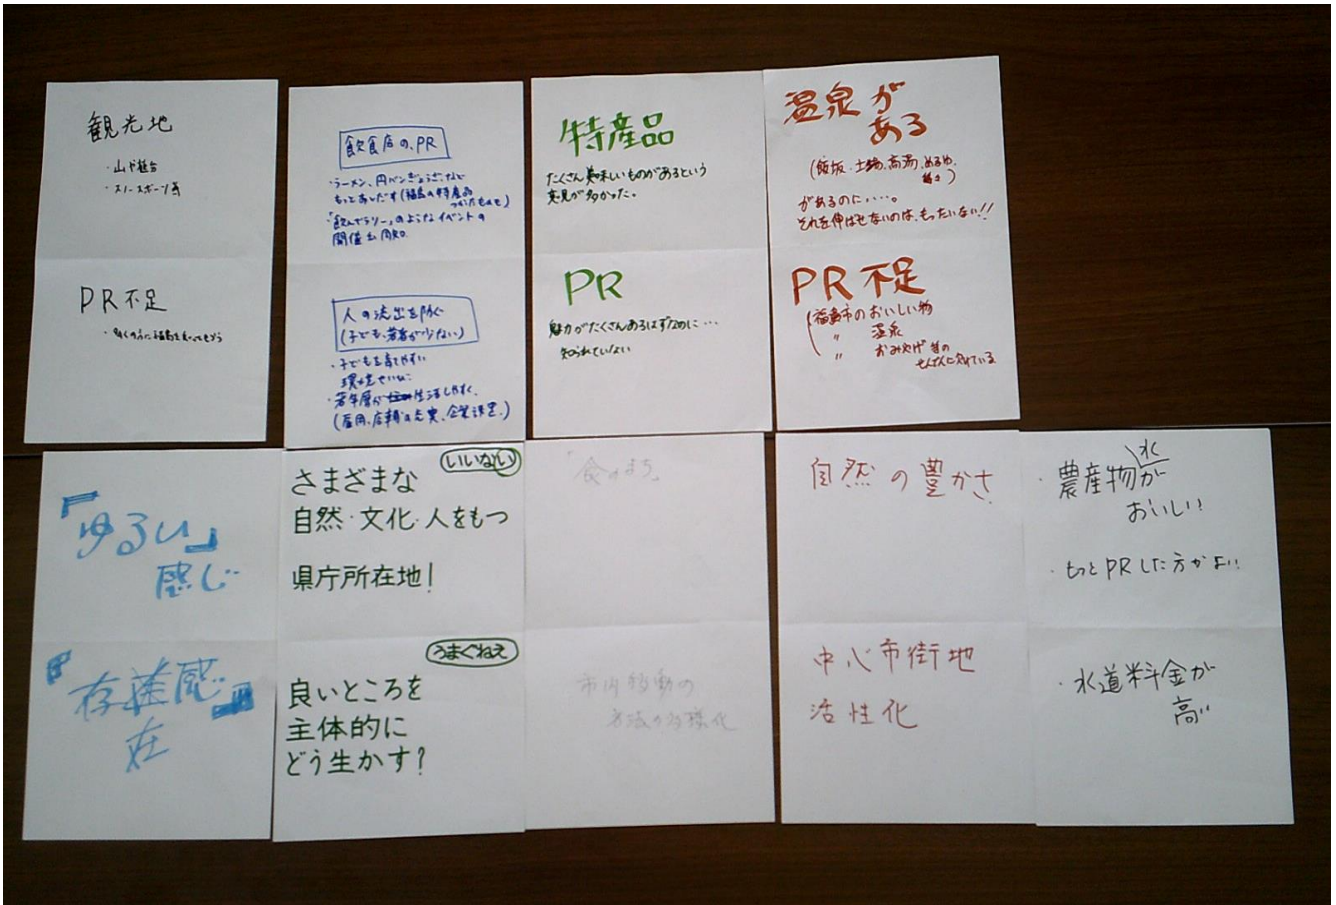 観光地
・山や
・スノースポーツ等
PR不足
・多くの方に福島を知ってもらう
飲食店の、PR
・ラーメン、円バンぎょうざ、など
もっとあじだす(福島の特産品
つかったものも)
・「飲んでラリー」のようなイベントの
開催と周知。
人の流出を防ぐ
(子ども、若者が少ない)
・子どもを育てやすい
環境せいび
・若年層が生活しやすく
(雇用、店舗の充実、企業誘致、)
特産品
たくさん美味しいものがあるという
意見が多かった。
PR
魅力がたくさんあるはずなのに…
知られていない
温泉が
ある
(飯坂・土湯、高湯、
があるのに・・・・。
それを伸ばせないのは、もったいない!!
PR不足
(福島市のおいしい物
〃 温泉
〃 おみやげ 等の
せんでんに欠けている
『ゆるい』
感じ
『存在感』
在
いいない
さまざまな
自然・文化・人をもつ
県庁所在地!
うまぐねえ
良いところを
主体的に
どう生かす?
「食のまち」
市内移動の
方法の多様化
自然の豊かさ
中心市街地
活性化
水
・農産物が
おいしい
・もっとPRした方がよい
・水道料金が
高い